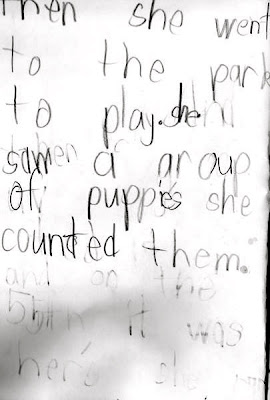 Then she went
to the park
to play. she
saw a group
of puppies she
counted them.
and on the
55th it was
her's she